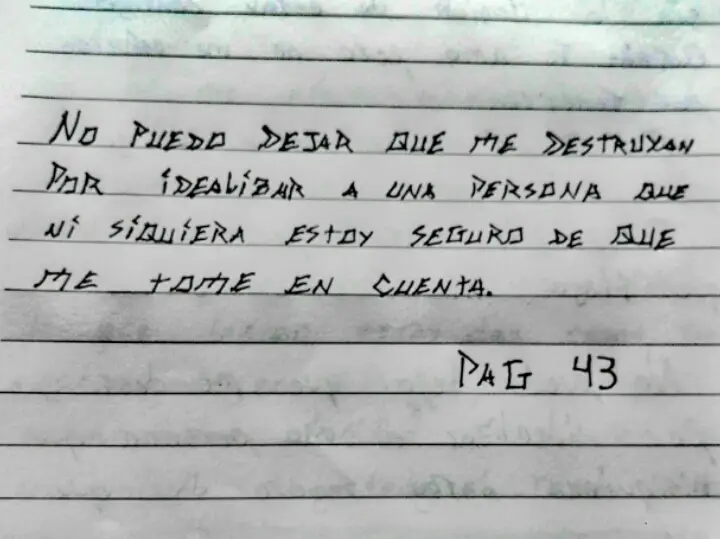 NO PUEDO DEJAR QUE ME DESTRUYAN
POR iDEALiZAR A UNA PERSONA QUE
Ni SiQUiERA ESTOY SEGURO DE QUE
ME TOME EN CUENTA.
PAG 43